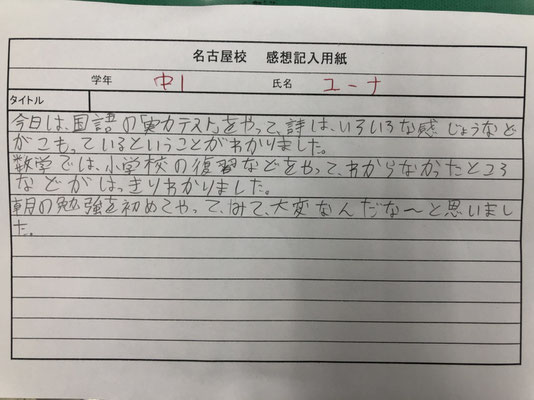 名古屋校 感想記入用紙
学年 中1 氏名 ユーナ
タイトル
今日は、国語の「実力テスト」をやって、詩は、いろいろな感じょうなど
がこもっているということがわかりました。
数学では、小学校の復習などをやって、わからなかったところ
などがはっきりわかりました。
朝の勉強を初めてやって、みて、大変なんだな～と思いまし
た。